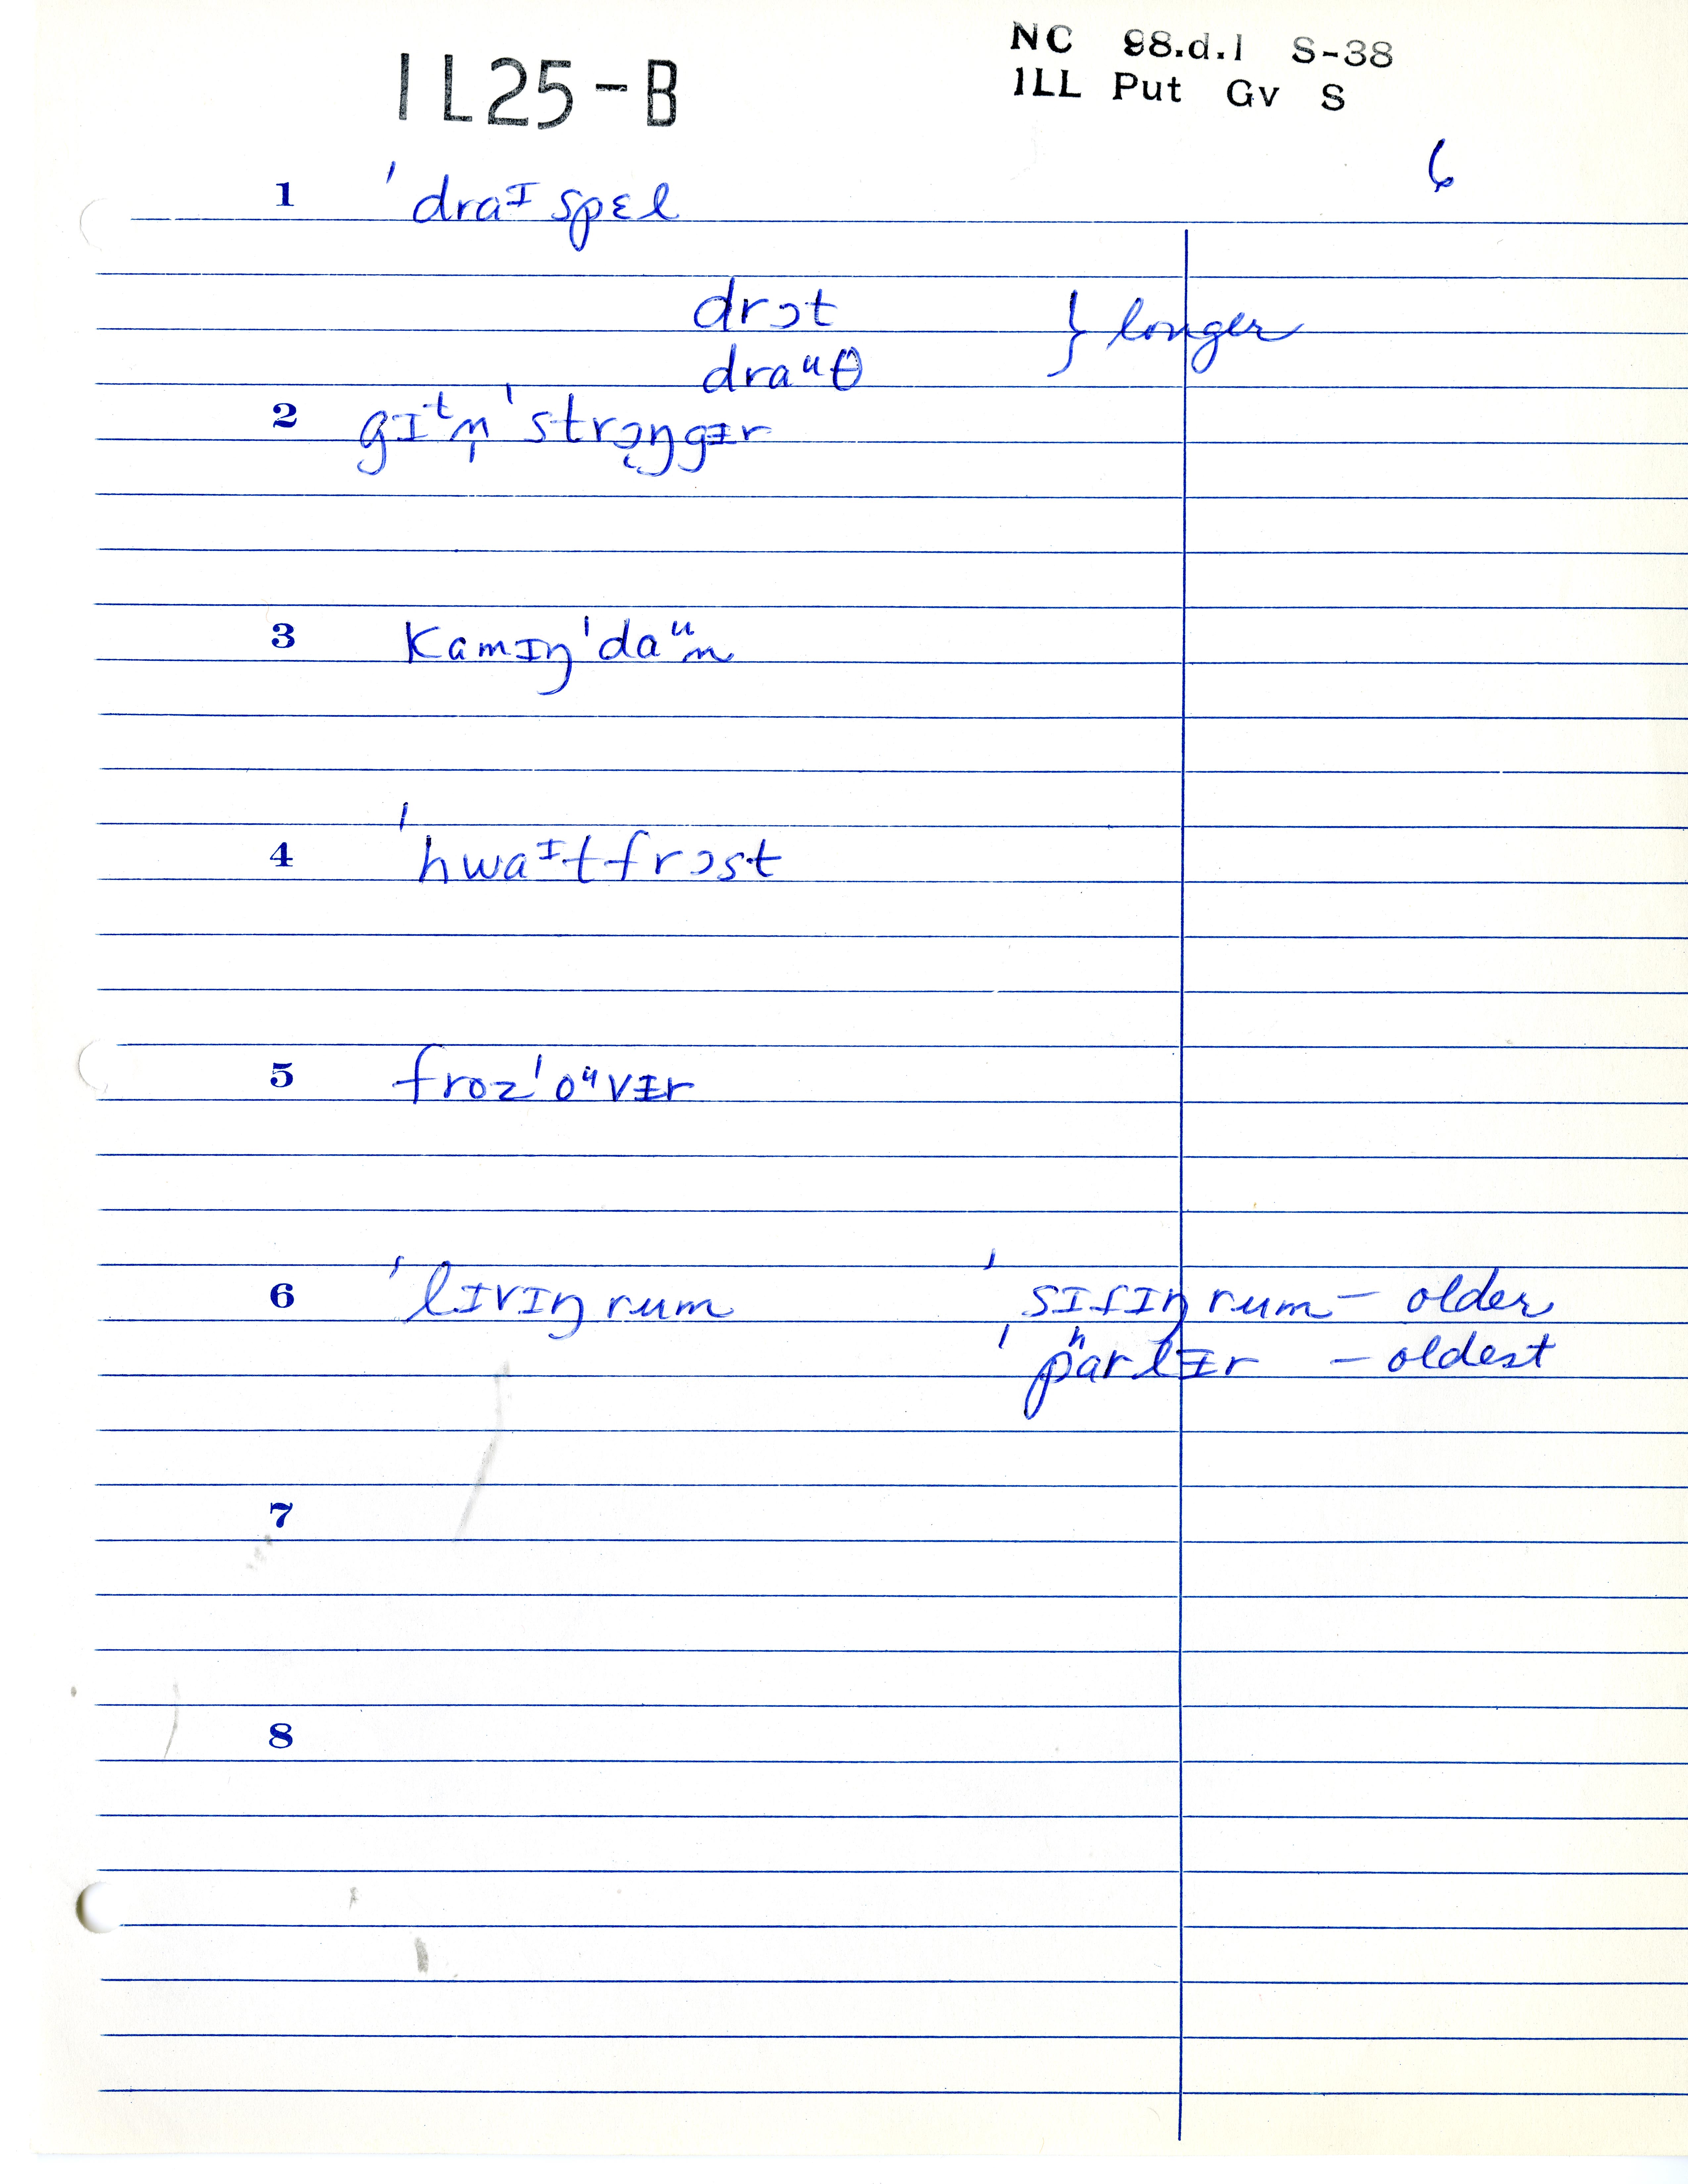 IL25-B
NC 98.d.1 S-38
ILL Put Gv S
6
1 ˈdraᴵspɛl
drɔt } longer
draᵘθ
2 gɪᵗn̩ ˈstrɔ̨ŋgᵻr
3 kamɪŋ ˈdaᵘn
4 ˈhwaᴵtfrɔst
5 froz ˈoᵘvᵻr
6 ˈlɪvɪŋ rum ˈsɪɾɪŋ rum – older
ˈpʰarlᵻr – oldest
7
8